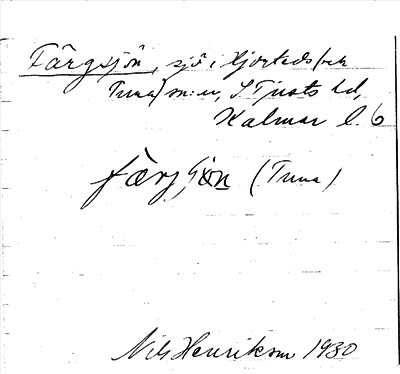 Färgsjön, sjö i Hjorteds (och
Tuna) sn:ar, S Tjusts hd,
Kalmar l. 6
färjsjön (Tuna)
Nils Henrikson 1930